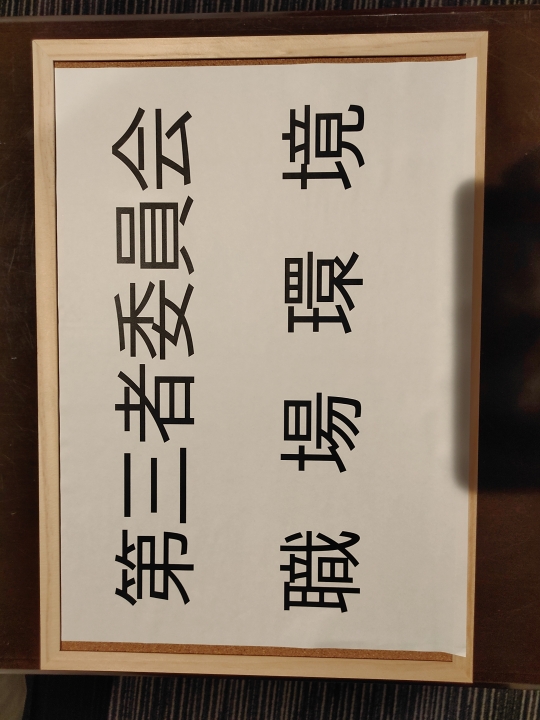 第三者委員会
職場環境